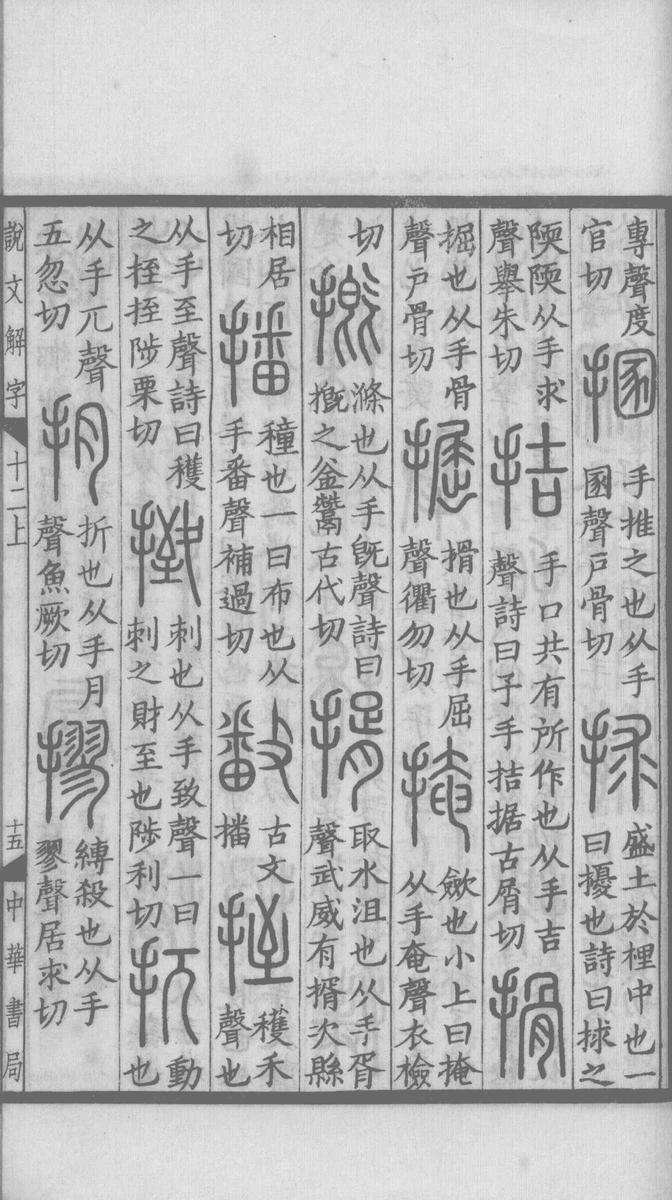 專聲度官切 㨡 手推之也从手圂聲戶骨切 捄 盛土於梩中也一曰擾也詩曰捄之
陾陾从手求聲舉朱切 拮 手口共有所作也从手吉聲詩曰子手拮据古屑切 搰
掘也从手骨聲戶骨切 掘 搰也从手屈聲衢勿切 掩 斂也小上曰掩从手奄聲衣檢
切 摡 滌也从手旣聲詩曰摡之釜鬵古代切 揟 取水沮也从手胥聲武威有揟次縣
相居切 播 穜也一曰布也从手番聲補過切 𢿥 古文播 挃 穫禾聲也
从手至聲詩曰穫之挃挃陟栗切 㨖 刺也从手致聲一曰刺之財至也陟利切 扤 動也
从手兀聲五忽切 抈 折也从手月聲魚厥切 摎 縛殺也从手翏聲居求切
說文解字 十二上 十五 中華書局